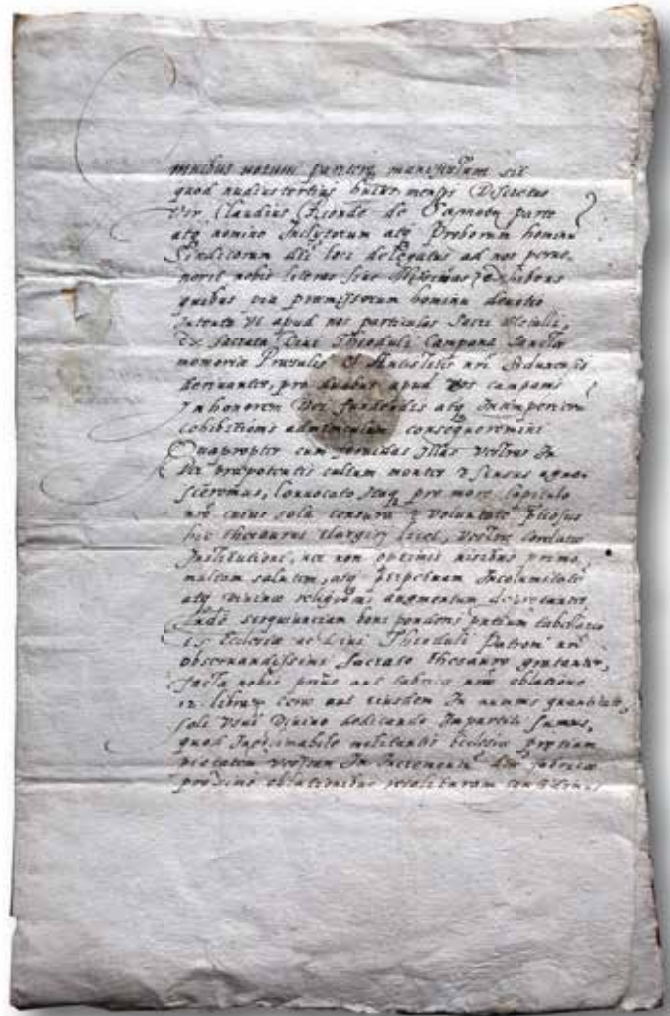 omnibus notum pariterq manifestum sit
quod nudiustertius huius mensis Discretus
vir Claudius de Samoëy parte
atq nomine Inclytorum atq Proborum hominū
Sindicorum dči loci delegatus ad nos perue„
nerit nobis literas siue Missiuas exhibens
quibus via præmissorum hominū deuotio
Intenta vt apud nos particulas Sacri Metalli,
ex sacrata Diui Theoduli Campana Sanctæ
memoriæ Præsulis et Antistitis nri Sedunensis
deriuante, pro duabus apud vos campanis
In honorem Dei fundendis atq Intemperierū
cohibitionis adminiculum consequeremini
Quapropter cum feruidas illas vestras In
Dei præpotentis cultum mentes & sensus agno„
sceremus, Conuocato Itaq pro more Capitulo
nro cuius sola censura & voluntate ptiosus
hic thesaurus elargiri licet, vestræ
Institutioni, nec non optimis nisibus primo,
multam salutem, atq perpetuam Incolumitatē
atq diuinæ religionis augmentum
Inde sesquiunciam boni ponderis
Ecclesiæ ac Diui Theoduli Patroni nri
obseruandissimi Sacrato thesauro
facta nobis prius aut fabricæ nræ oblatione
12 librarū ceræ aut eiusdem In nummis quantitate,
soli vsui Diuino dedicando Impartiti sumus,
quod Inæstimabile militantis Ecclesiæ pretium
pietatem vestram In Incrementū dčæ fabricæ
oblationibus confidimus